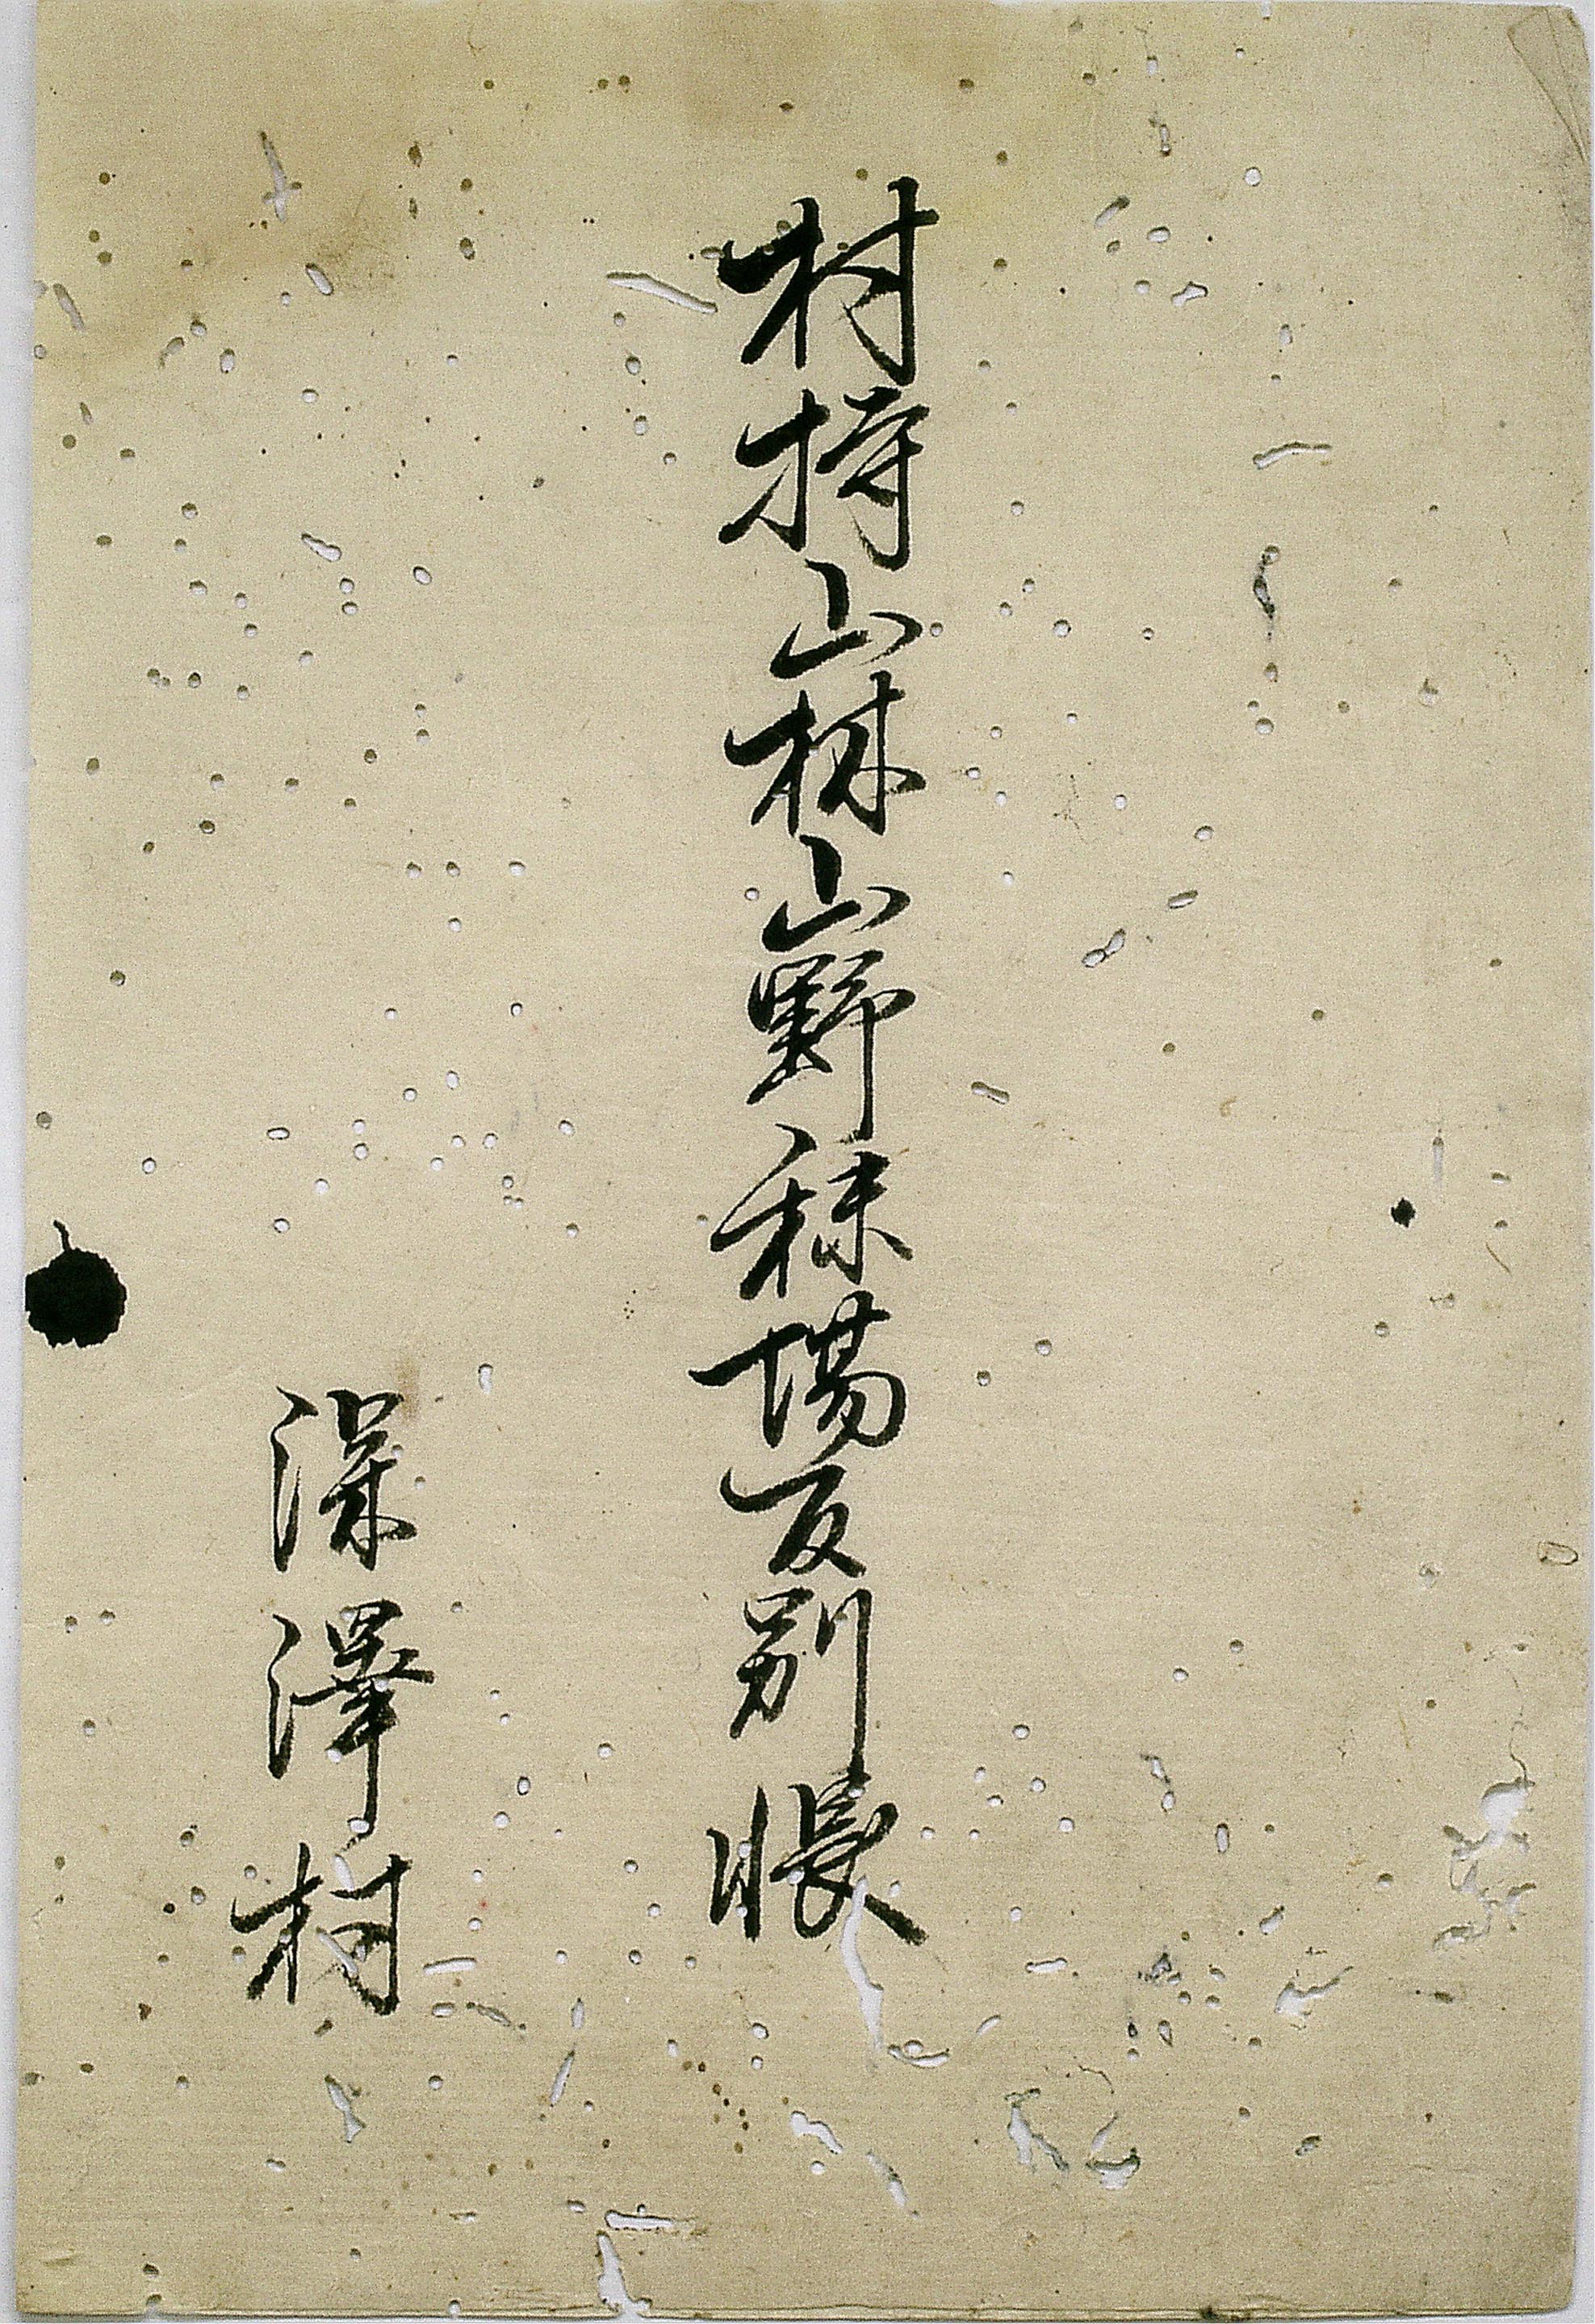 村持山林山野秣場反別帳
深澤村